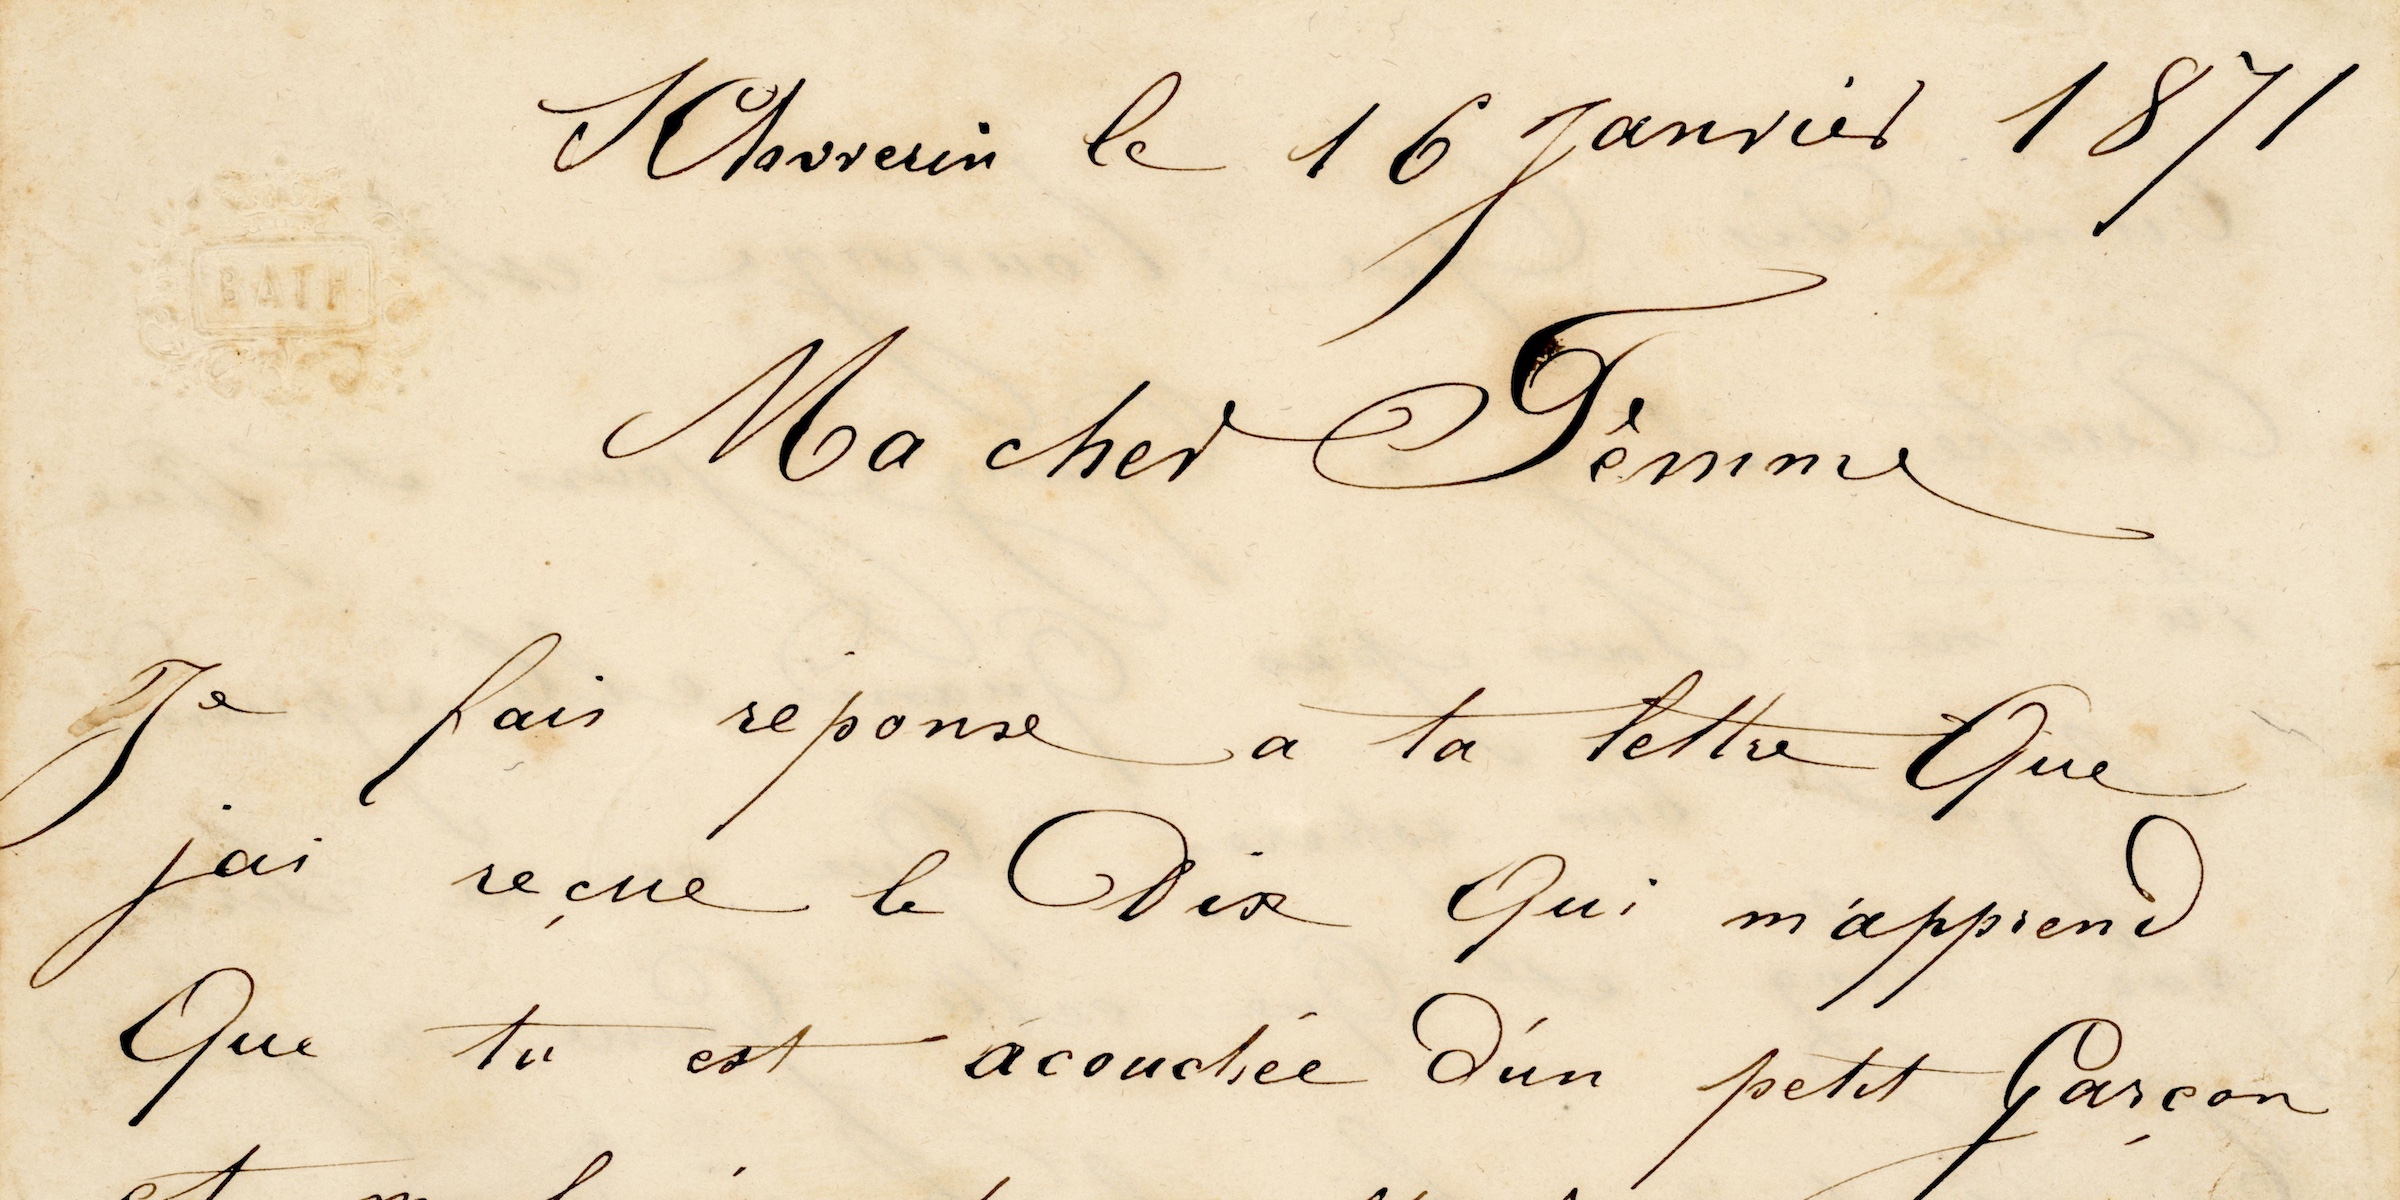 BATH
Schwerin le 16 Janvier 1871
Ma cher Fémme
Je fais réponse a ta lettre Que
jai reçue le Dix Qui m'apprend
Que tu est acouchée d'un petit Garçon
et